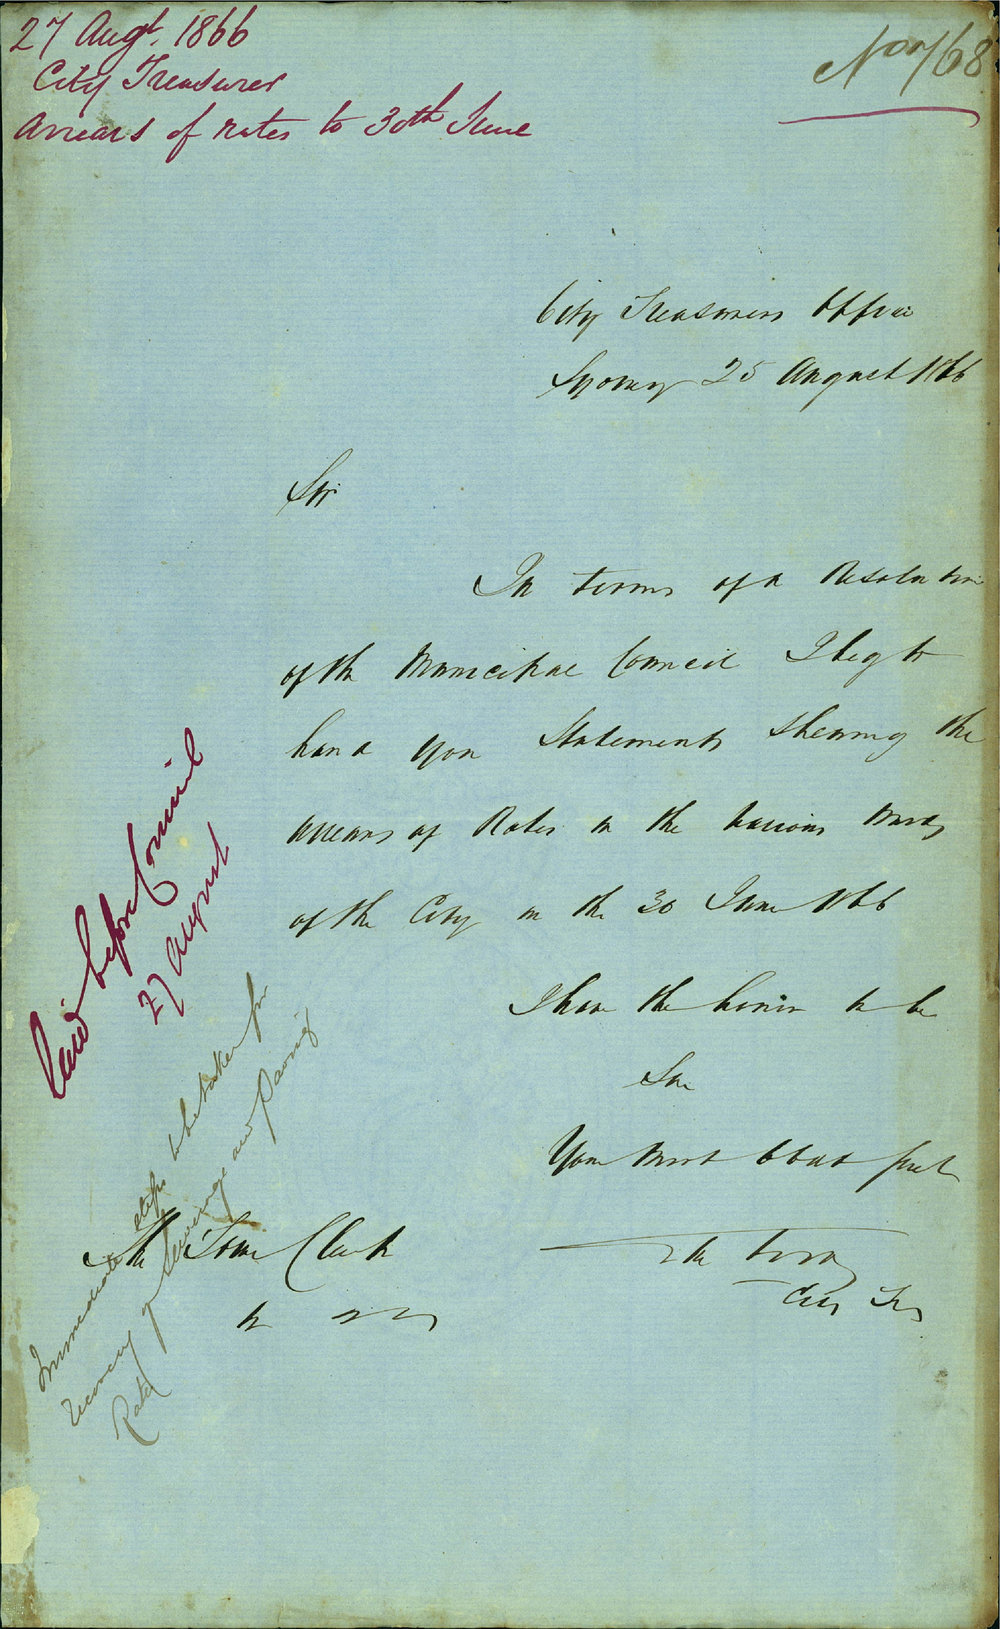 27 Augt. 1866
City Treasurer
Arrears of rates to 30th June
No 768
City Treasurers Office
Sydney 25 August 1866
Sir
In terms of a Resolution
of the Municipal Council I beg to
hand you Statements shewing the
arrears of Rates in the various Wards
of the City on the 30 June 1866
I have the honor to be
Sir
Your Most Obedt Servt
City Trs
The Town Clerk
Laid before Council
27 August
Immediate steps to be taken for
recovery of Sewerage and Paving
Rates